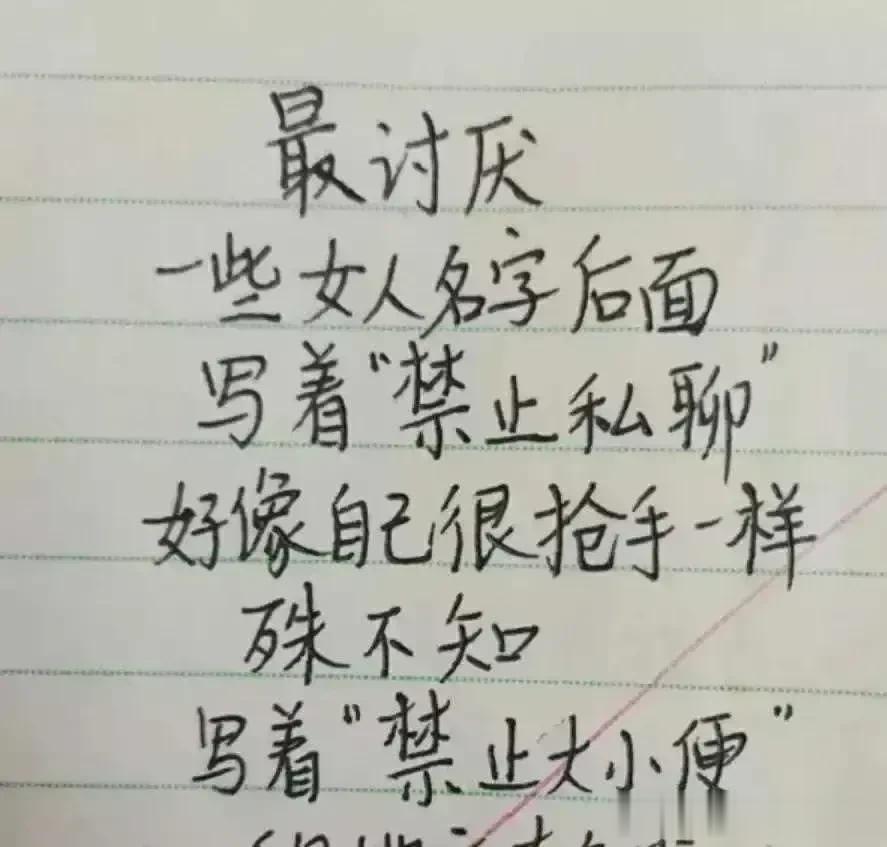 最讨厌
一些女人名字后面
写着“禁止私聊”
好像自己很抢手一样
殊不知
写着“禁止大小便”